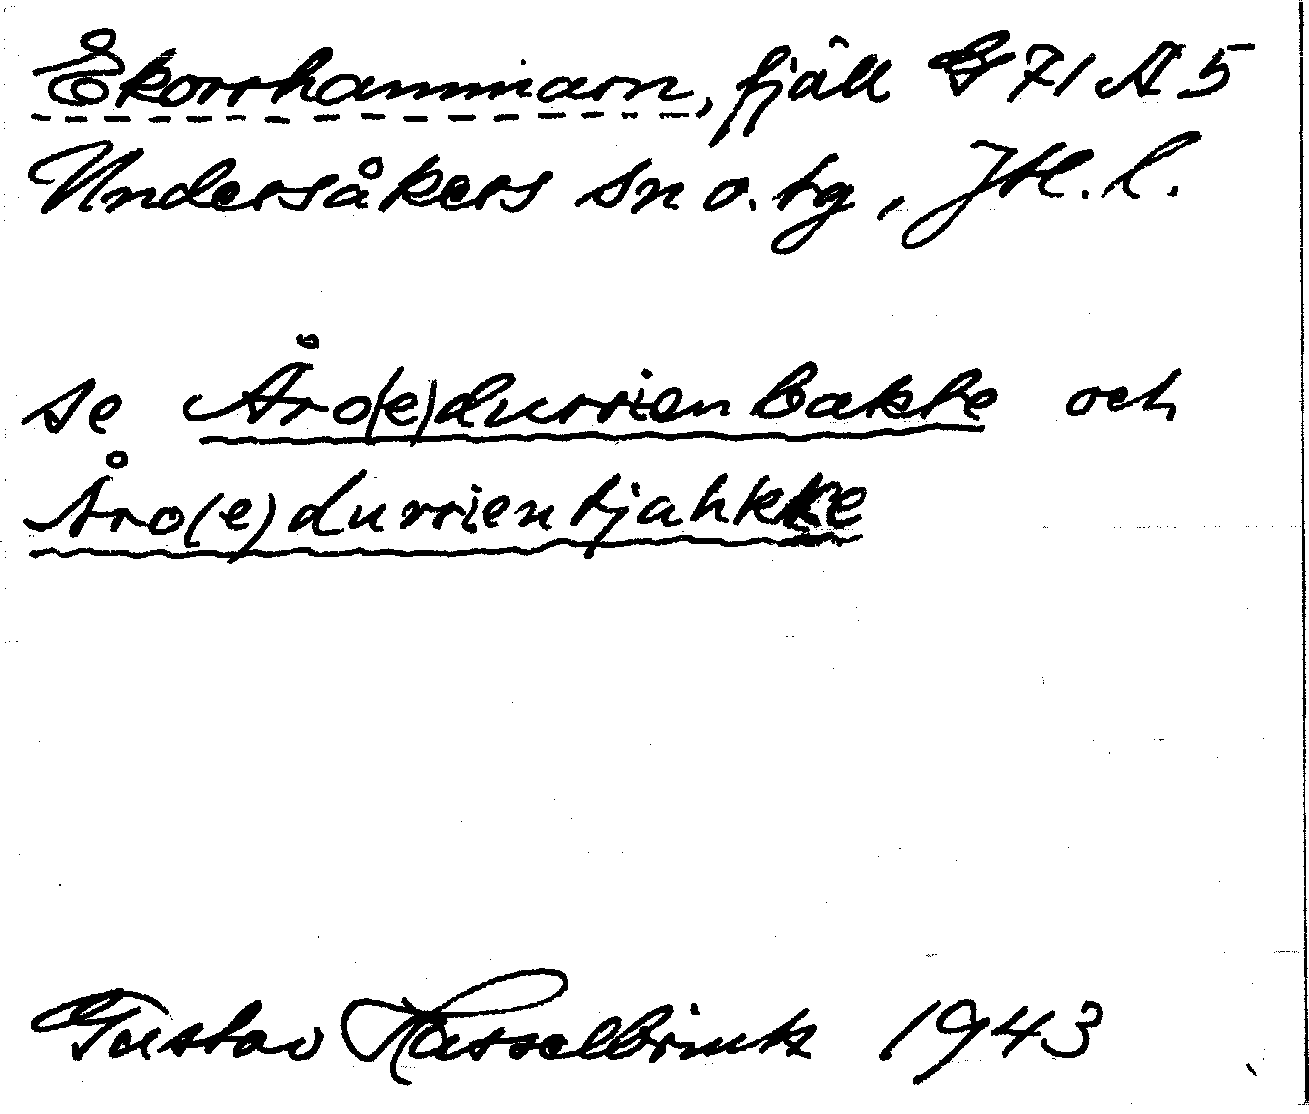 Ekorrhammarn, fjäll G 71 A 5
Undersåkers sn o. tg, Jtl. l.
se Åro(e)durrienbakte och
Åro(e)durrientjahkke
Gustav Hasselbrink 1943